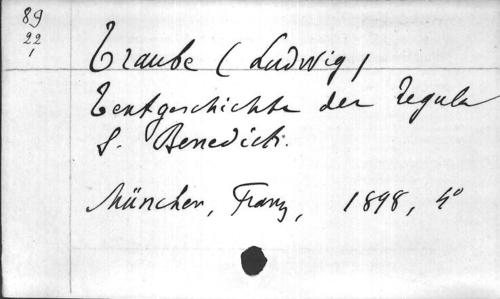 89
22
1
Traube (Ludwig)
Textgeschichte der Regula
S. Benedicti.
München, Franz, 1898, 4°